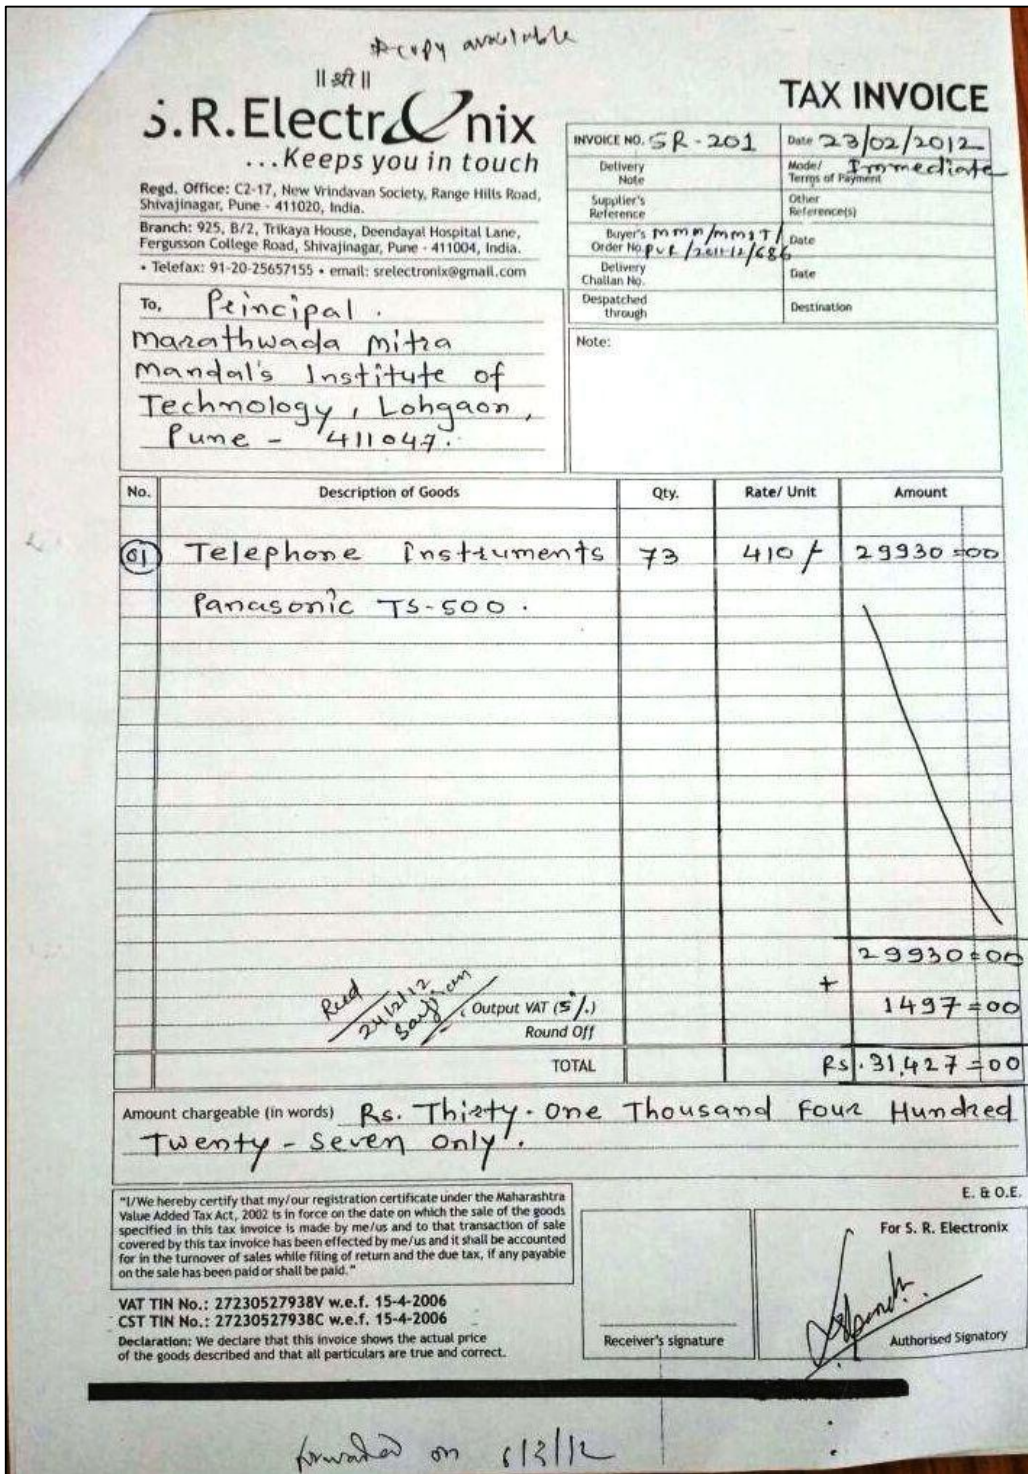 copy available
॥ श्री ॥
S.R.Electronix
...Keeps you in touch
Regd. Office: C2-17, New Vrindavan Society, Range Hills Road,
Shivajinagar, Pune - 411020, India.
Branch: 925, B/2, Trikaya House, Deendayal Hospital Lane,
Fergusson College Road, Shivajinagar, Pune - 411004, India.
• Telefax: 91-20-25657155 • email: srelectronix@gmail.com
TAX INVOICE
INVOICE NO. SR-201 Date 23/02/2012
Delivery Note Mode/ Terms of Payment Immediate
Supplier's Reference Other Reference(s)
Buyer's Order No. MMM/MMIT/PUR/2011-12/686 Date
Delivery Challan No. Date
Despatched through Destination
To, Peincipal.
Marathwada Mitra
Mandal's Institute of
Technology, Lohgaon,
Pune - 411047.
Note:
No. Description of Goods Qty. Rate/ Unit Amount
01 Telephone Instruments 73 410/- 29930=00
Panasonic TS-500.
29930=00
+
Output VAT (5%.) 1497=00
24/2/12
Round Off
TOTAL Rs.31,427=00
Amount chargeable (in words) Rs. Thirty-One Thousand Four Hundred
Twenty-Seven Only.
"I/We hereby certify that my/our registration certificate under the Maharashtra
Value Added Tax Act, 2002 is in force on the date on which the sale of the goods
specified in this tax invoice is made by me/us and to that transaction of sale
covered by this tax invoice has been effected by me/us and it shall be accounted
for in the turnover of sales while filing of return and the due tax, if any payable
on the sale has been paid or shall be paid."
VAT TIN No.: 27230527938V w.e.f. 15-4-2006
CST TIN No.: 27230527938C w.e.f. 15-4-2006
Declaration: We declare that this invoice shows the actual price
of the goods described and that all particulars are true and correct.
Receiver's signature
E. & O.E.
For S. R. Electronix
Authorised Signatory
forwarded on 6/3/12